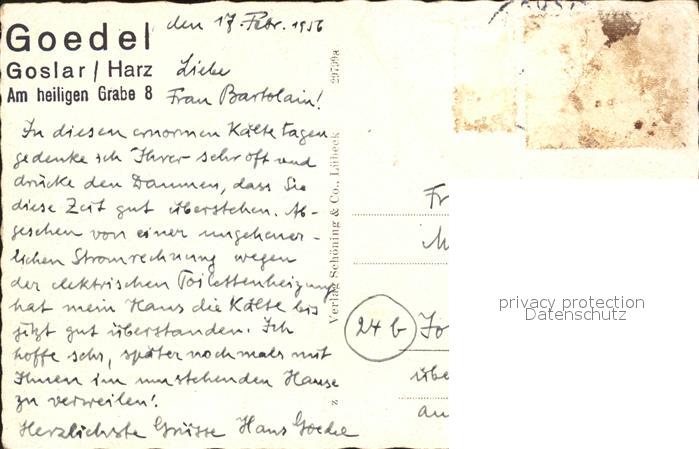 Goedel
Goslar / Harz
Am heiligen Grabe 8
den 17. Febr. 1956
Liebe
Frau Bartolain!
In diesen enormen Kälte tagen
gedenke ich Ihrer sehr oft und
drücke den Daumen, dass Sie
diese Zeit gut überstehen. Ab-
gesehen von einer ungeheuer-
lichen Stromrechnung wegen
der elektrischen Toilettenheizung
hat mein Haus die Kälte bis
jetzt gut überstanden. Ich
hoffe sehr, später nochmals mit
Ihnen im umstehenden Hause
zu verweilen!
Herzlichste Grüsse Hans Goedel
Verlag Schöning & Co., Lübeck
z
Fr
24 b
Jo
übe
an
privacy protection
Datenschutz